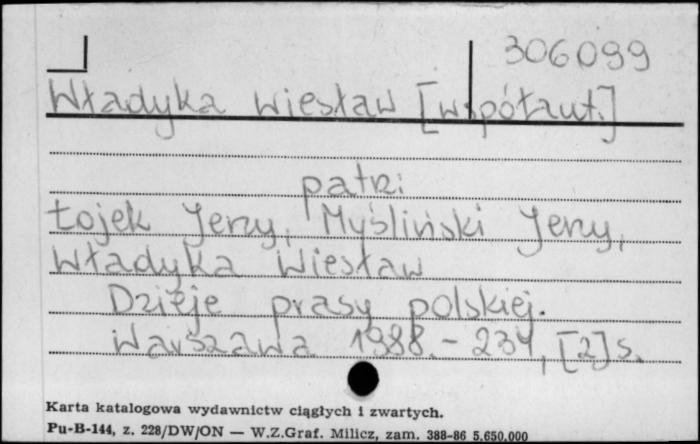 306099
Władyka Wiesław [współaut.]
patrz:
Łojek Jerzy, Myśliński Jerzy,
Władyka Wiesław
Dzieje prasy polskiej.
Warszawa 1988. - 234, [2] s.
Karta katalogowa wydawnictw ciągłych i zwartych.
Pu-B-144, z. 228/DW/ON — W.Z.Graf. Milicz, zam. 388-86 5.650.000